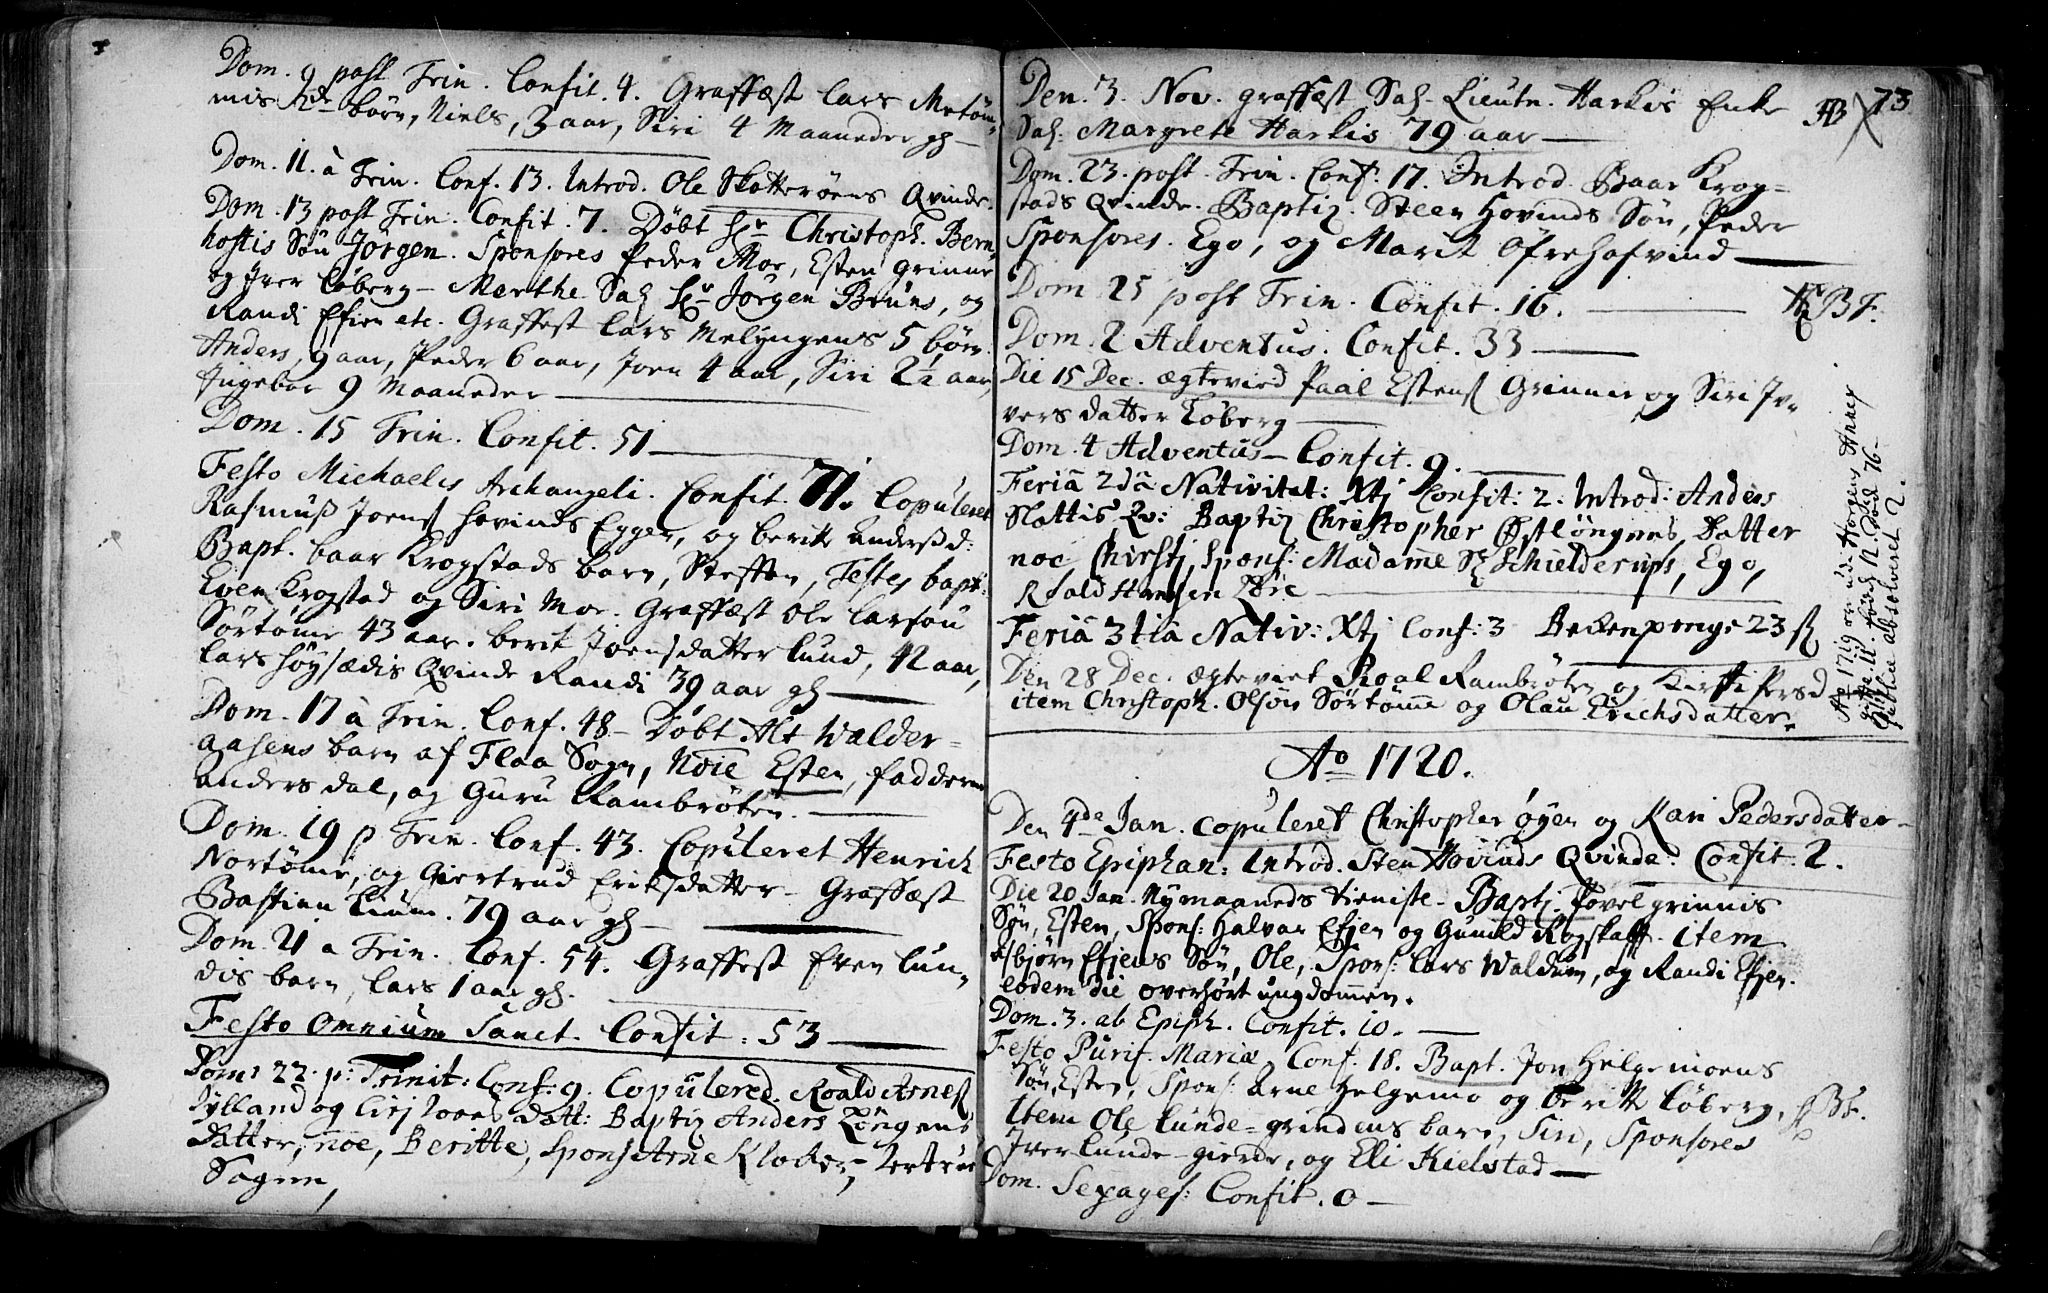 Dom. 9 post Trin. Confit. 4. Graffæst Lars Metöm=
mis 2de börn, Niels, 3 aar, Siri 4 Maaneder gl —
Dom. 11. à Trin. Conf. 13. Introd. Ole Skotterøens Qvinde.
Dom. 13 post Trin. Confit. 7. Döbt Hr Christoph. Bern
hoftis Sön Jörgen. Sponsores Peder Moe, Esten Grinne
og Iver Löberg — Merthe Sal Hr Jörgen Bruns, og
Randi Efien etc. Graffest Lars Melyngens 5 börn.
Anders, 9 aar, Peder 6 aar, Joen 4 aar, Siri 2½ aar,
Ingebor 9 Maaneder —
Dom. 15 Trin. Confit. 51 —
Festo Michaelis Archangeli. Confit. 71. Copuleret
Rasmus Joens Hovinds Eggen, og berit Andersd:
Bapt. baar Krogstads barn, Steffen, Testes bapt:
Even Krogstad og Siri Moe. Graffæst Ole Larsøn
Sörtömme 43 aar. berit Joensdatter Lund, 42 aar,
Lars Höysædis Qvinde Randi 39 aar gl —
Dom. 17 à Trin. Conf. 48 — Döbt Alt Walder=
aasens barn af Flaa Sogn, Noie Esten, faddere
anders dal, og Guru Rambröten. —
Dom. 19 p Trin. Conf. 43. Copuleret Henrich
Nortömme, og Giertrud Eriksdatter — Graffæst
Bastian Lium. 79 aar gl —
Dom. 21 a Trin. Conf. 54. Graffest Even Lun=
dis barn, Lars 1 aar gl.
Festo Omnium Sanct. Confit: 53 —
Dom: 22. p: Trinit: Conf: 9. Copulered. Roald Arnes
Jylland og Datt: Baptiz Anders Löngens
Datter, noe, Beritte, Spons: Arne Klocker,
Sognen,
Den. 3. Nov. graffæst Sal. Lieutn. Harkis Enke
Sal. Margrete Harkis 79 aar —
73
Dom. 23. post. Trin. Conf. 17. Introd. Baar Krog=
stads Qvinde. Baptiz. Steen Hovinds Sön, Peder
Sponsores. Ego, og Marit Öfrehofvind —
Dom 25 post Trin. Confit. 16. —
Dom. 2 Adventus. Confit. 33 —
Die 15 Dec. ægtevied Paal Estens Grinne og Siri Iv=
vers datter Löberg —
Dom. 4 Adventus — Confit. 9. —
Feriâ 2dâ Nativitat: Xtj Confit: 2. Introd: Anders
Slattis Qv: Baptiz Christopher Östlöngnes Datter
noe Chirstj, Spons: Madame Sl Schielderups, Ego,
Roald Hansen
Feriâ 3tiâ Nativ: Xtj Conf: 3 Beckenpenge 23 ß
Den 28 Dec. ægteviet Roal Rambröten og Kirsti Persd
item Christoph. Olsøn Sörtömme og Olau Erichsdatter.
Ao 1719
publice absolveret 2.
Ao 1720.
Den 4de Jan. copuleret Christopher øyen og Kari Pedersdatter —
Festo Epiphan: Introd. Sten Hovinds Qvinde: Confit: 2.
Die 20 Jan. Nymaaneds tieniste. Baptz. Povel grinnis
Sön, Esten, Spons: Halvar Efjen og Gunild Rogstaff. item
Asbjörn Efjens Sön, Ole, Spons: Lars Waldum, og Randi Efjen.
Eodem die overhört ungdommen.
Dom. 3. ab Epiph. Confit. 10. —
Festo Purif. Mariæ Conf: 18. Bapt. Jon Helgemoens
Sön, Esten, Spons: Arne Helgemo og Beritt Löberg,
Item Ole Lunde=grindens barn, Siri, Sponsores
Iver Lunde=gierde, og Eli Kielstad —
Dom. Sexages: Confit. 0 —